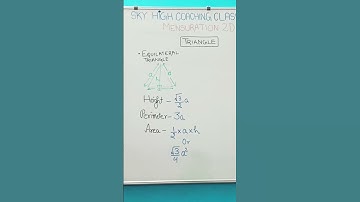 SKY HIGH COACHING CLASS
MENSURATION 2D
TRIANGLE
• EQUILATERAL
TRIANGLE
Height - √3/2 a
Perimeter - 3a
Area - 1/2 × a × h
Or
√3/4 a²